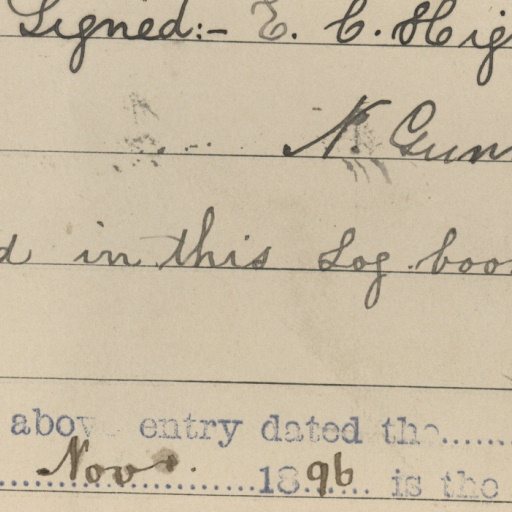 Signed:- E. C. Hig
N. Gunn
d in this Log book
above entry dated the.......
Nov. 1896 is the